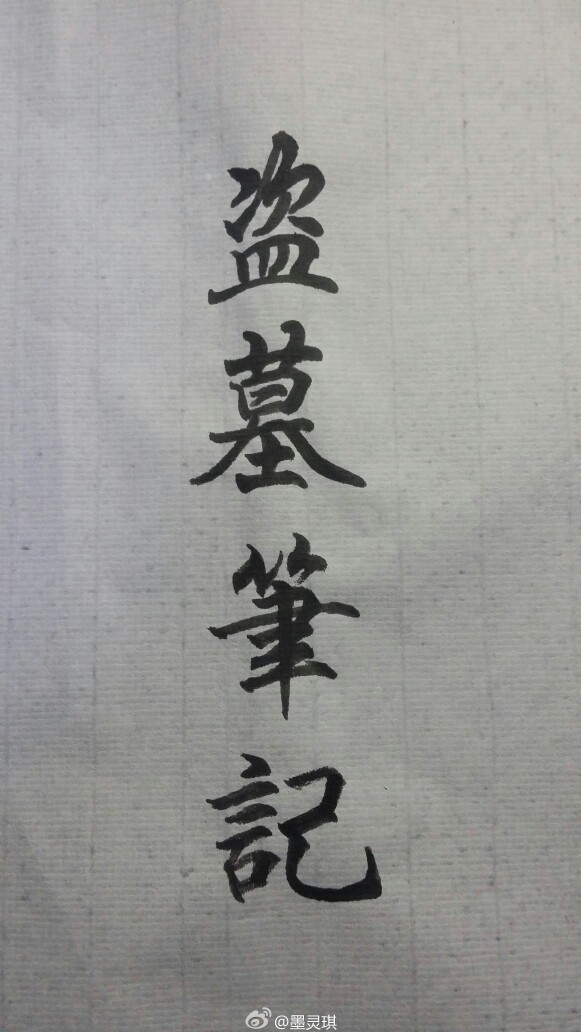 盗墓筆記
@墨灵琪